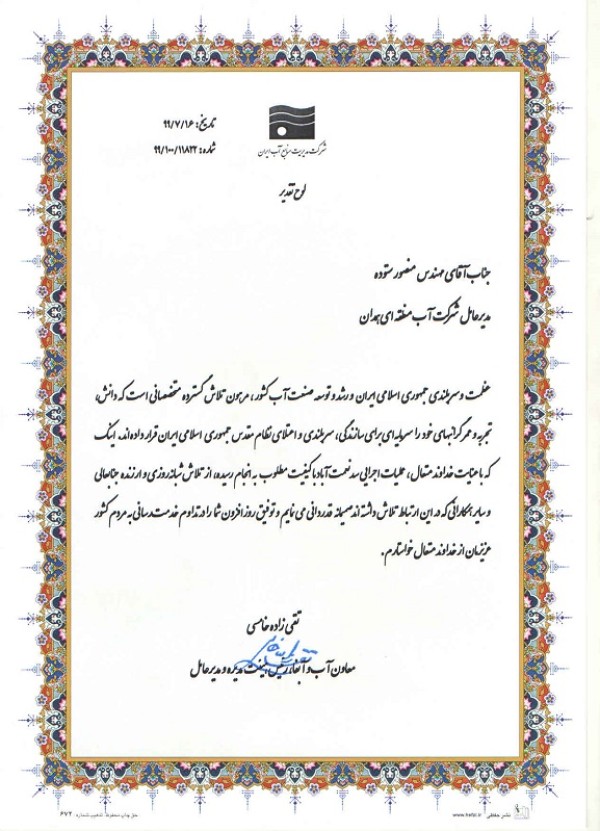 تاریخ: ۹۹/۷/۱۶
شماره: ۹۹/۱۰۰/۱۱۸۲۲
شرکت مدیریت منابع آب ایران
لوح تقدیر
جناب آقای مهندس منصور ستوده
مدیرعامل شرکت آب منطقه ای همدان
عظمت و سربلندی جمهوری اسلامی ایران و رشد و توسعه صنعت آب کشور، مرهون تلاش گسترده متخصصانی است که دانش،
تجربه و عمر گرانبهای خود را سرمایه ای برای سازندگی، سربلندی و اعتلای نظام مقدس جمهوری اسلامی ایران قرار داده اند. اینک
که با عنایت خداوند متعال، عملیات اجرایی سد نعمت آباد با کیفیت مطلوب به انجام رسیده، از تلاش شبانه روزی و ارزنده جنابعالی
و سایر همکارانی که در این ارتباط تلاش داشته اند صمیمانه قدردانی می نمایم و توفیق روزافزون شما را در تداوم خدمت رسانی به مردم کشور
عزیزمان از خداوند متعال خواستارم.
تقی زاده خامسی
معاون آب و آبفا، رئیس هیئت مدیره و مدیرعامل
حق چاپ محفوظ. تذهیب شماره: ۶۷۲
www.hefzi.ir